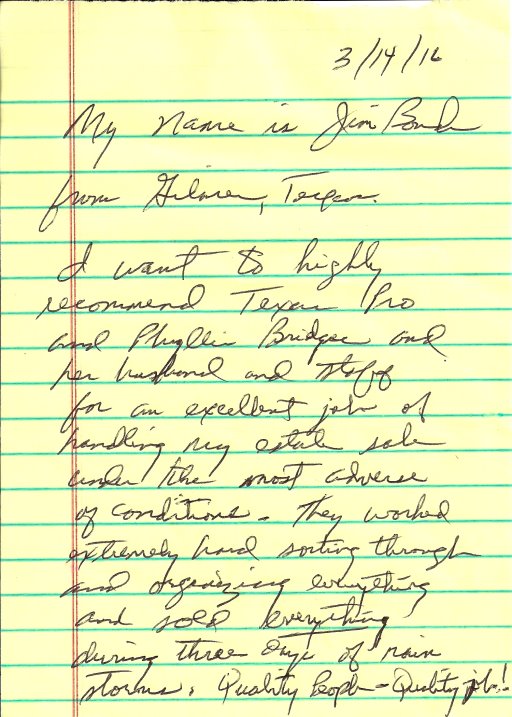 3/14/16
My name is Jim Bonds
from Gilmer, Texas.
I want to highly
recommend Texas Pro
and Phyllis Bridges and
her husband and staff
for an excellent job of
handling my estate sale
under the most adverse
of conditions. They worked
extremely hard sorting through
and organizing everything
and sold everything
during three days of rain
storms. Quality People - Quality job!